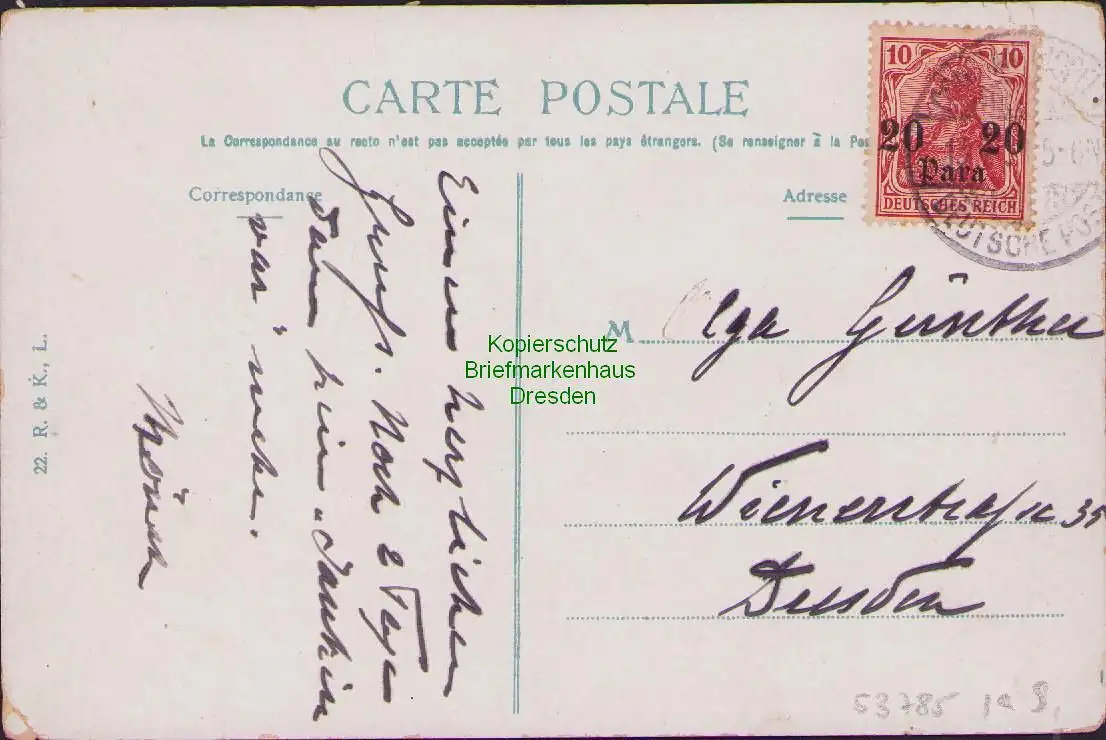 CARTE POSTALE
La Correspondance au recto n'est pas acceptée par tous les pays étrangers. (Se renseigner à la Pos
Correspondance
Adresse
10 10
20 20
Para
DEUTSCHES REICH
5-6N
DEUTSCHE POST
Einen herzlichen
Gruß. Noch 2 Tage
dann
war
M Olga Günther
Wienerstraße 35
Dresden
22. R. & K., L.
Kopierschutz
Briefmarkenhaus
Dresden
53785 Ia